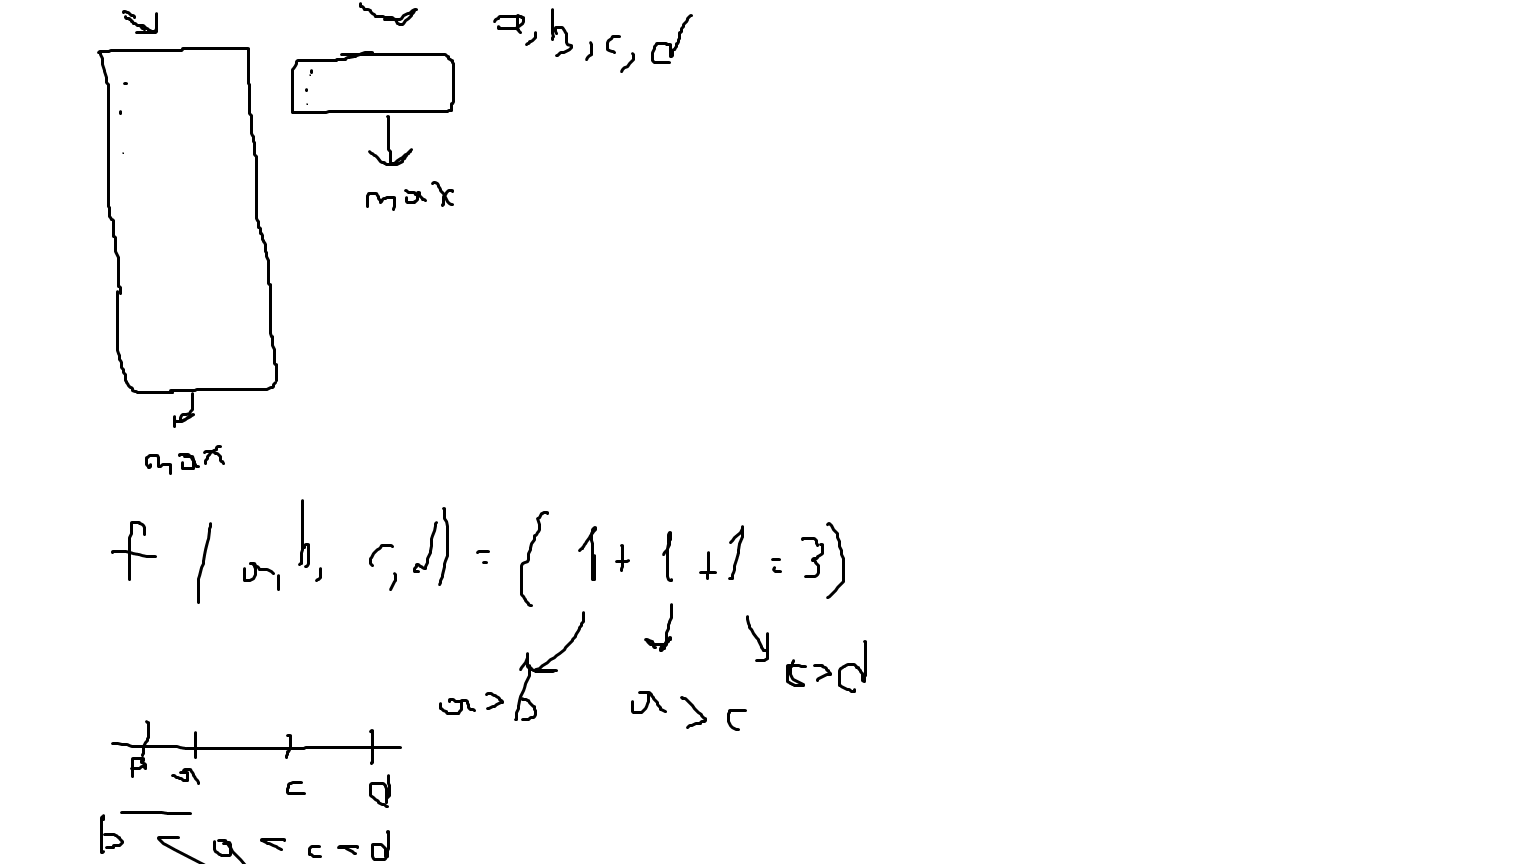 a, b, c, d
max
max
f ( a, b, c, d ) = ( 1 + 1 + 1 = 3 )
a > b
a > c
c > d
b a c d
b < a < c < d